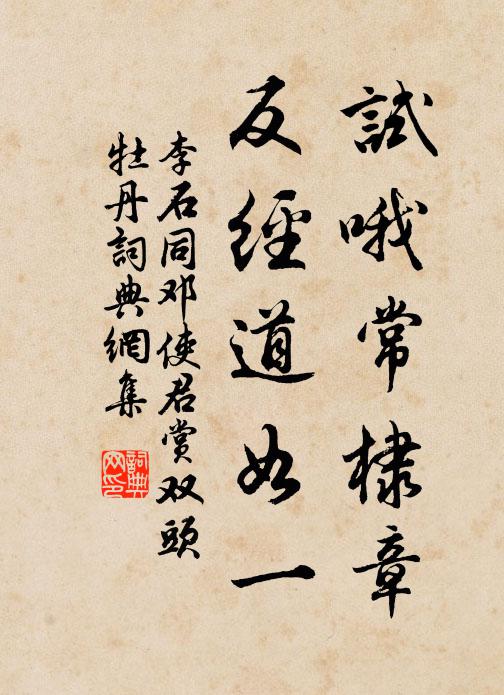 試哦常棣章
反經道如一
李石同邓使君賞双頭
牡丹詞典網集
詞典网印